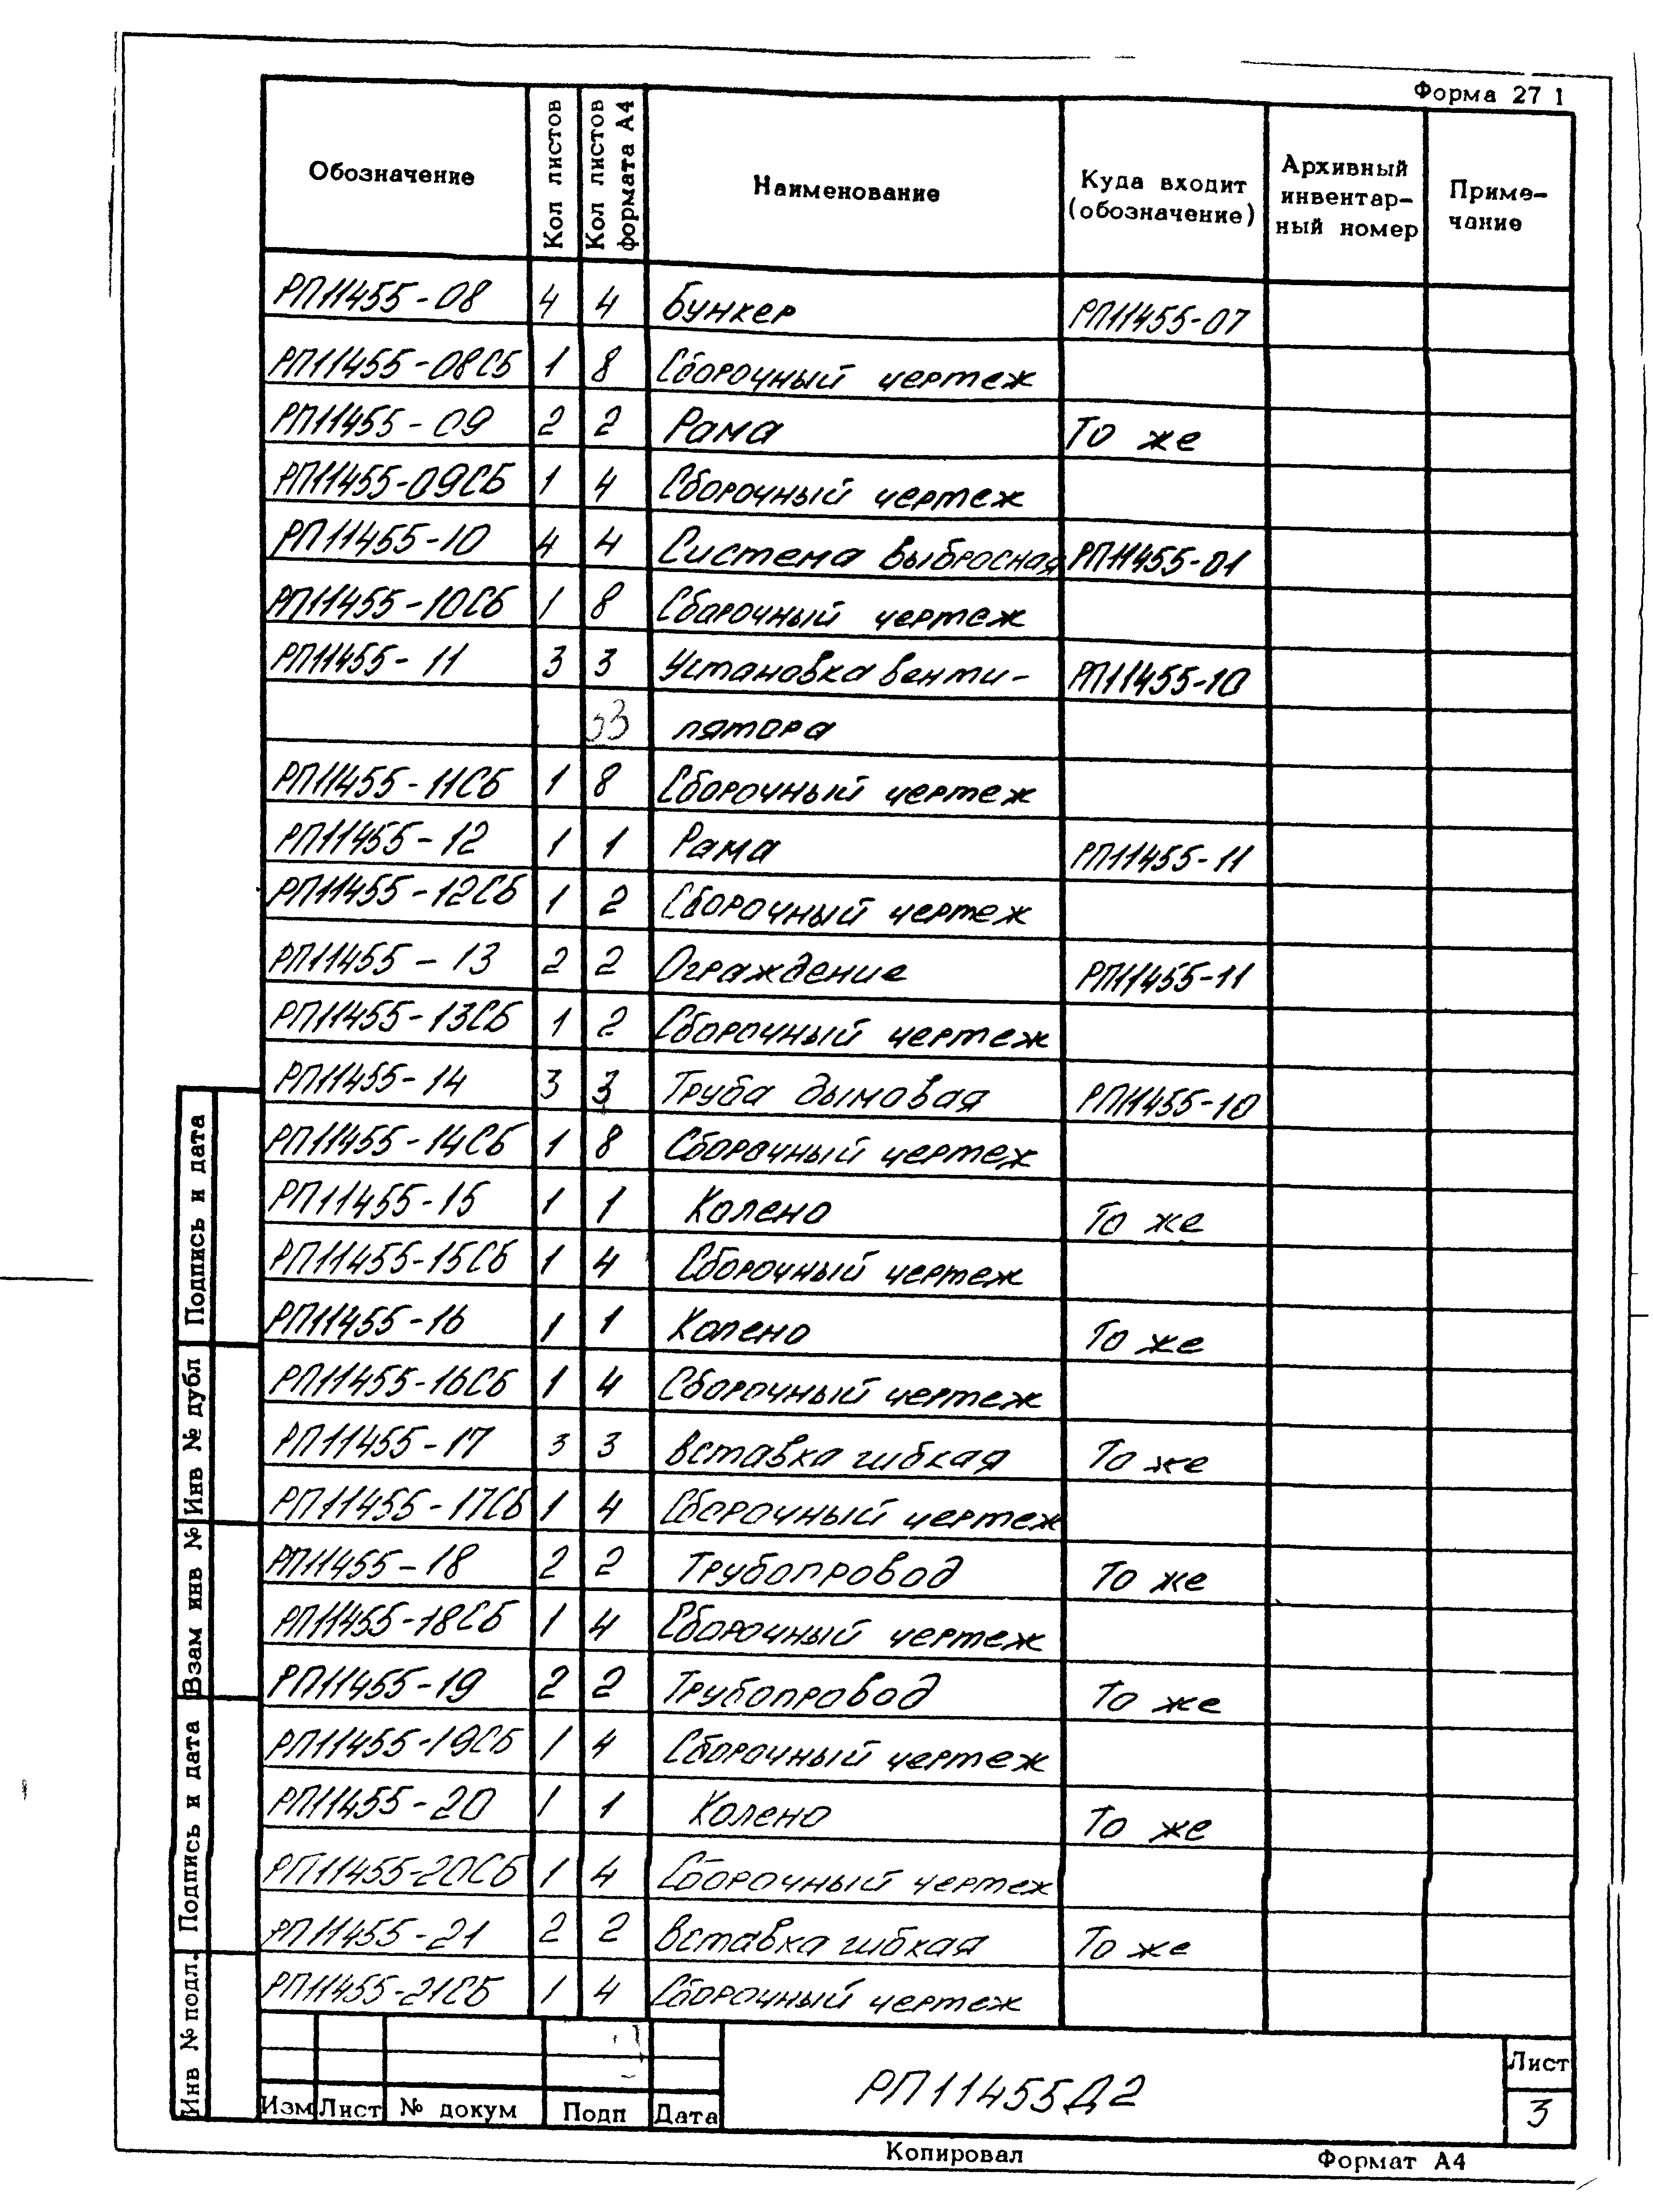 Форма 27 1
Обозначение Кол листов Кол листов формата А4 Наименование Куда входит (обозначение) Архивный инвентар-ный номер Приме-чание
РП11455-08 4 4 Бункер РП11455-07
РП11455-08СБ 1 8 Сборочный чертеж
РП11455-09 2 2 Рама То же
РП11455-09СБ 1 4 Сборочный чертеж
РП11455-10 4 4 Система выбросная РП11455-01
РП11455-10СБ 1 8 Сборочный чертеж
РП11455-11 3 3 Установка венти-РП11455-10
33 лятора
РП11455-11СБ 1 8 Сборочный чертеж
РП11455-12 1 1 Рама РП11455-11
РП11455-12СБ 1 2 Сборочный чертеж
РП11455-13 2 2 Ограждение РП11455-11
РП11455-13СБ 1 2 Сборочный чертеж
РП11455-14 3 3 Труба дымовая РП11455-10
РП11455-14СБ 1 8 Сборочный чертеж
РП11455-15 1 1 Колено То же
РП11455-15СБ 1 4 Сборочный чертеж
РП11455-16 1 1 Колено То же
РП11455-16СБ 1 4 Сборочный чертеж
РП11455-17 3 3 Вставка гибкая То же
РП11455-17СБ 1 4 Сборочный чертеж
РП11455-18 2 2 Трубопровод То же
РП11455-18СБ 1 4 Сборочный чертеж
РП11455-19 2 2 Трубопровод То же
РП11455-19СБ 1 4 Сборочный чертеж
РП11455-20 1 1 Колено То же
РП11455-20СБ 1 4 Сборочный чертеж
РП11455-21 2 2 Вставка гибкая То же
РП11455-21СБ 1 4 Сборочный чертеж
Подпись и дата
Инв № дубл
Взам инв №
Подпись и дата
Инв № подл.
Изм Лист № докум Подп Дата
РП11455Д2
Лист
3
Копировал Формат А4